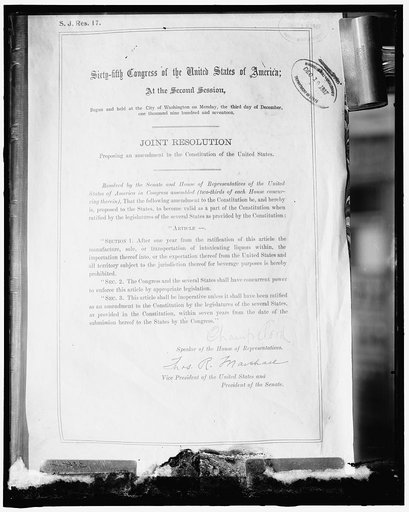 S. J. Res. 17.
Sixty-fifth Congress of the United States of America;
At the Second Session,
Begun and held at the City of Washington on Monday, the third day of December,
one thousand nine hundred and seventeen.
JOINT RESOLUTION
Proposing an amendment to the Constitution of the United States.
Resolved by the Senate and House of Representatives of the United
States of America in Congress assembled (two-thirds of each House concur-
ring therein), That the following amendment to the Constitution be, and hereby
is, proposed to the States, to become valid as a part of the Constitution when
ratified by the legislatures of the several States as provided by the Constitution:
"ARTICLE —.
"SECTION 1. After one year from the ratification of this article the
manufacture, sale, or transportation of intoxicating liquors within, the
importation thereof into, or the exportation thereof from the United States and
all territory subject to the jurisdiction thereof for beverage purposes is hereby
prohibited.
"SEC. 2. The Congress and the several States shall have concurrent power
to enforce this article by appropriate legislation.
"SEC. 3. This article shall be inoperative unless it shall have been ratified
as an amendment to the Constitution by the legislatures of the several States,
as provided in the Constitution, within seven years from the date of the
submission hereof to the States by the Congress."
Speaker of the House of Representatives.
Thos. R. Marshall
Vice President of the United States and
President of the Senate.